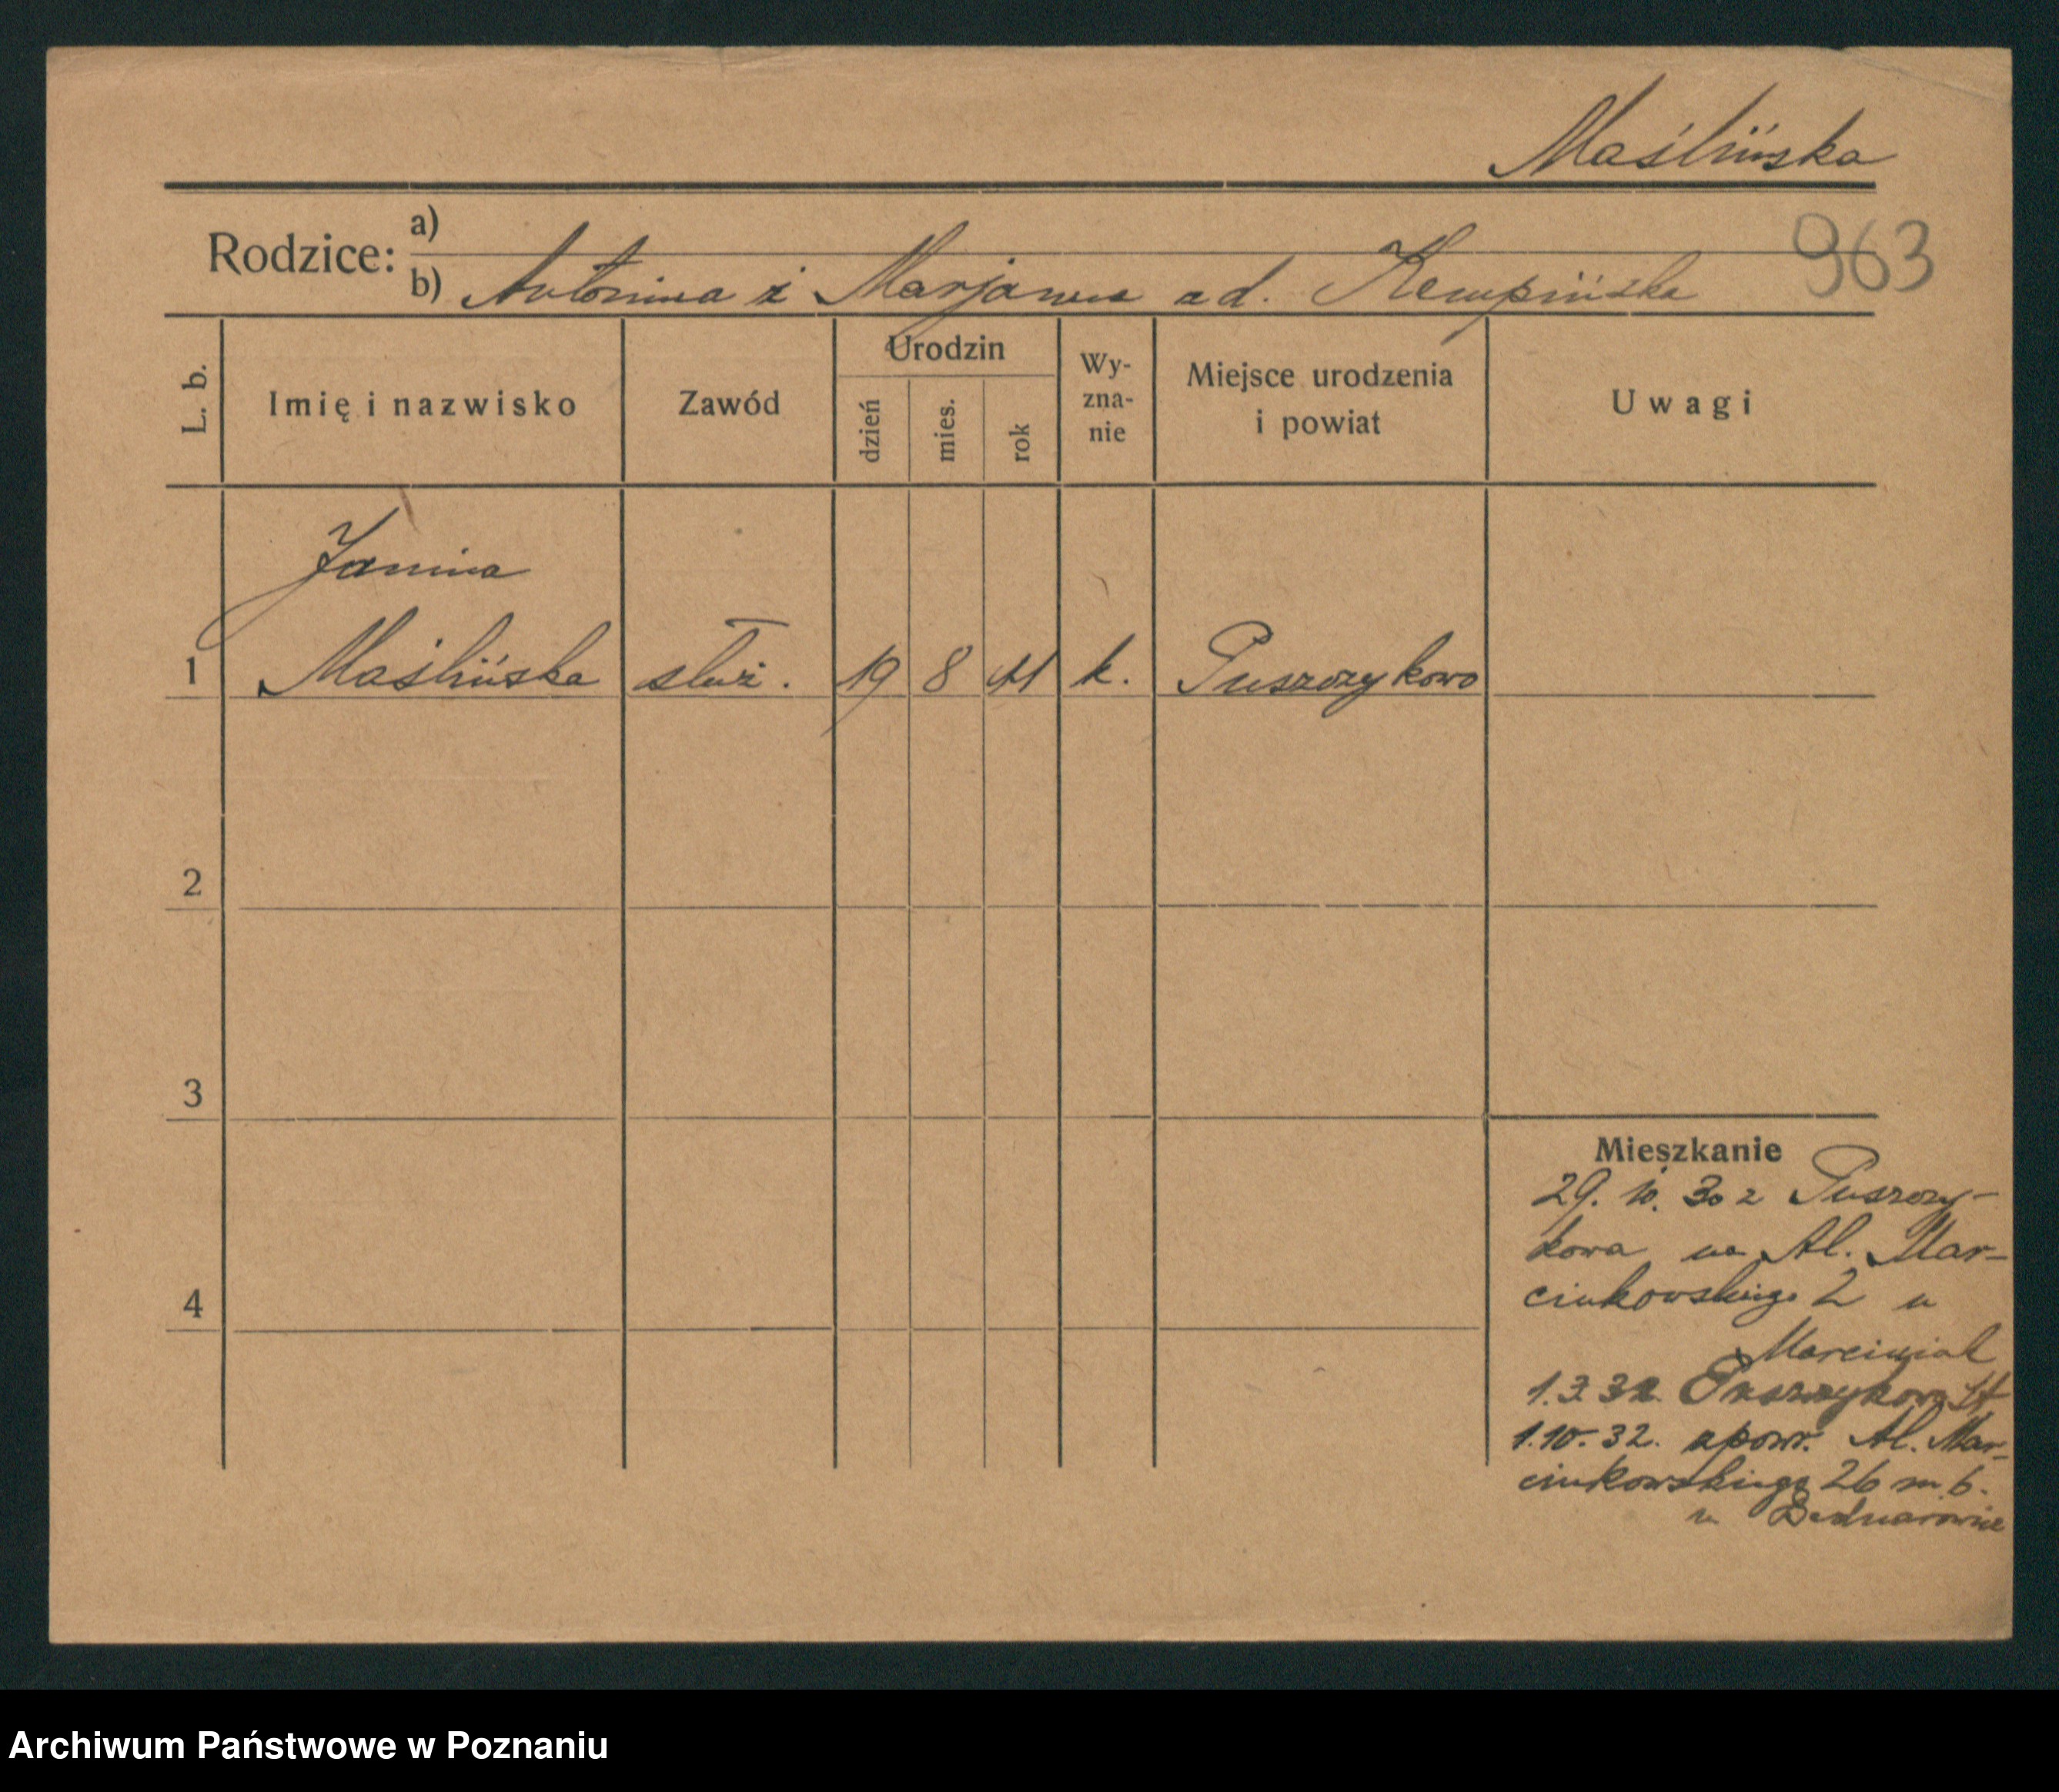 Maślińska
963
Rodzice:
a)
b) Antonina i Marjanna ad. Kempińska
L. b.
Imię i nazwisko
Zawód
Urodzin
dzień
mies.
rok
Wy-
zna-
nie
Miejsce urodzenia
i powiat
Uwagi
Janina
1 Maślińska służ. 19 8 11 k. Puszczykowo
2
3
4
Mieszkanie
29. 10. 30 z Puszczy-
kowa na Al. Mar-
cinkowskiego 2 u
Marciniak
1. 3. 32. Puszczykowo St
1.10.32. spowr. Al. Mar-
cinkowskiego 26 m. 6.
u
Archiwum Państwowe w Poznaniu